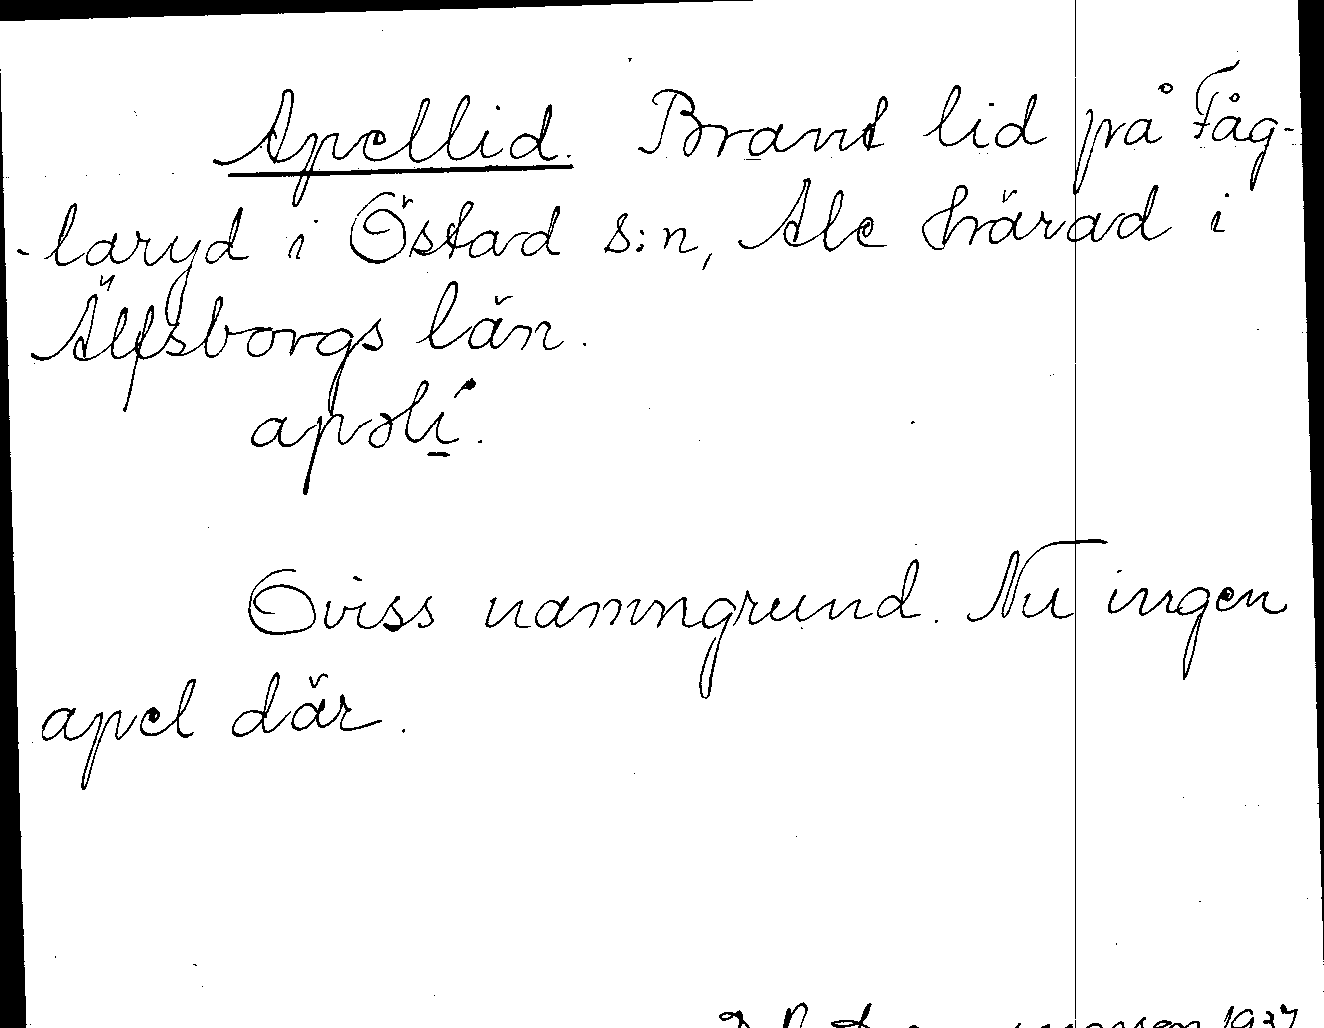 Apellid. Brant lid på Fåg-
-laryd i Östad s:n, Ale härad i
Älfsborgs län.
apəlí.
Oviss namngrund. Nu ingen
apel där.
1937